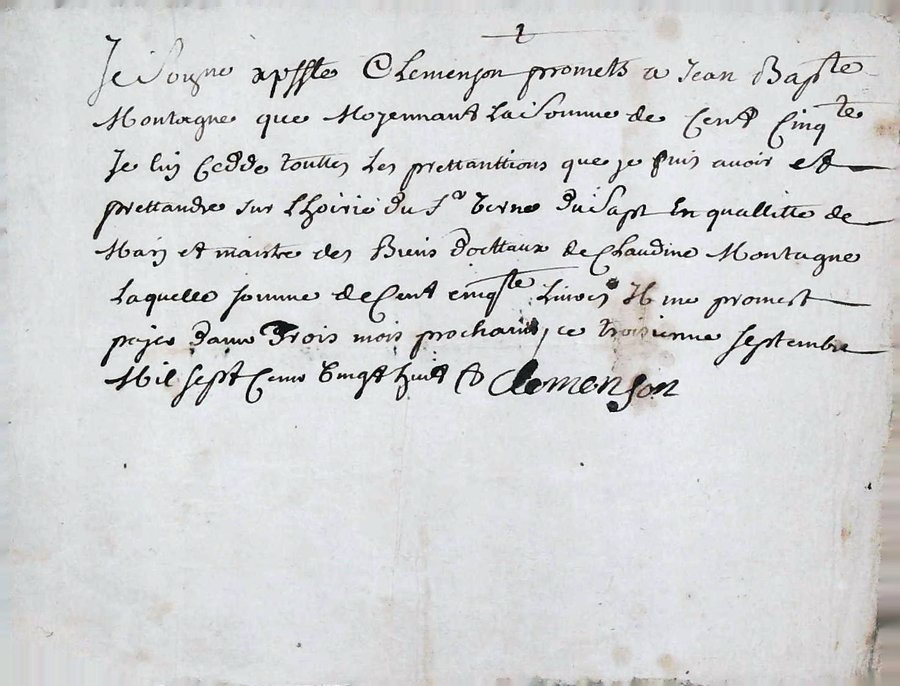 Je Soigne Clemenson promets a Jean Bapste
Montagne que Moyennant La Somme de Cent Cinqte
Je luy Cedde touttes Les prettanttions que je puis avoir et
prettandre sur Lhoirie du Sr terne En quallitte de
Mary et maistre des Biens dottaux de Claudine Montagne
Laquelle somme de Cent cinqte Livres Il me promest
payer dans trois mois prochains, ce troisienne septembre
Mil sept Cens vingt huit Clemenson